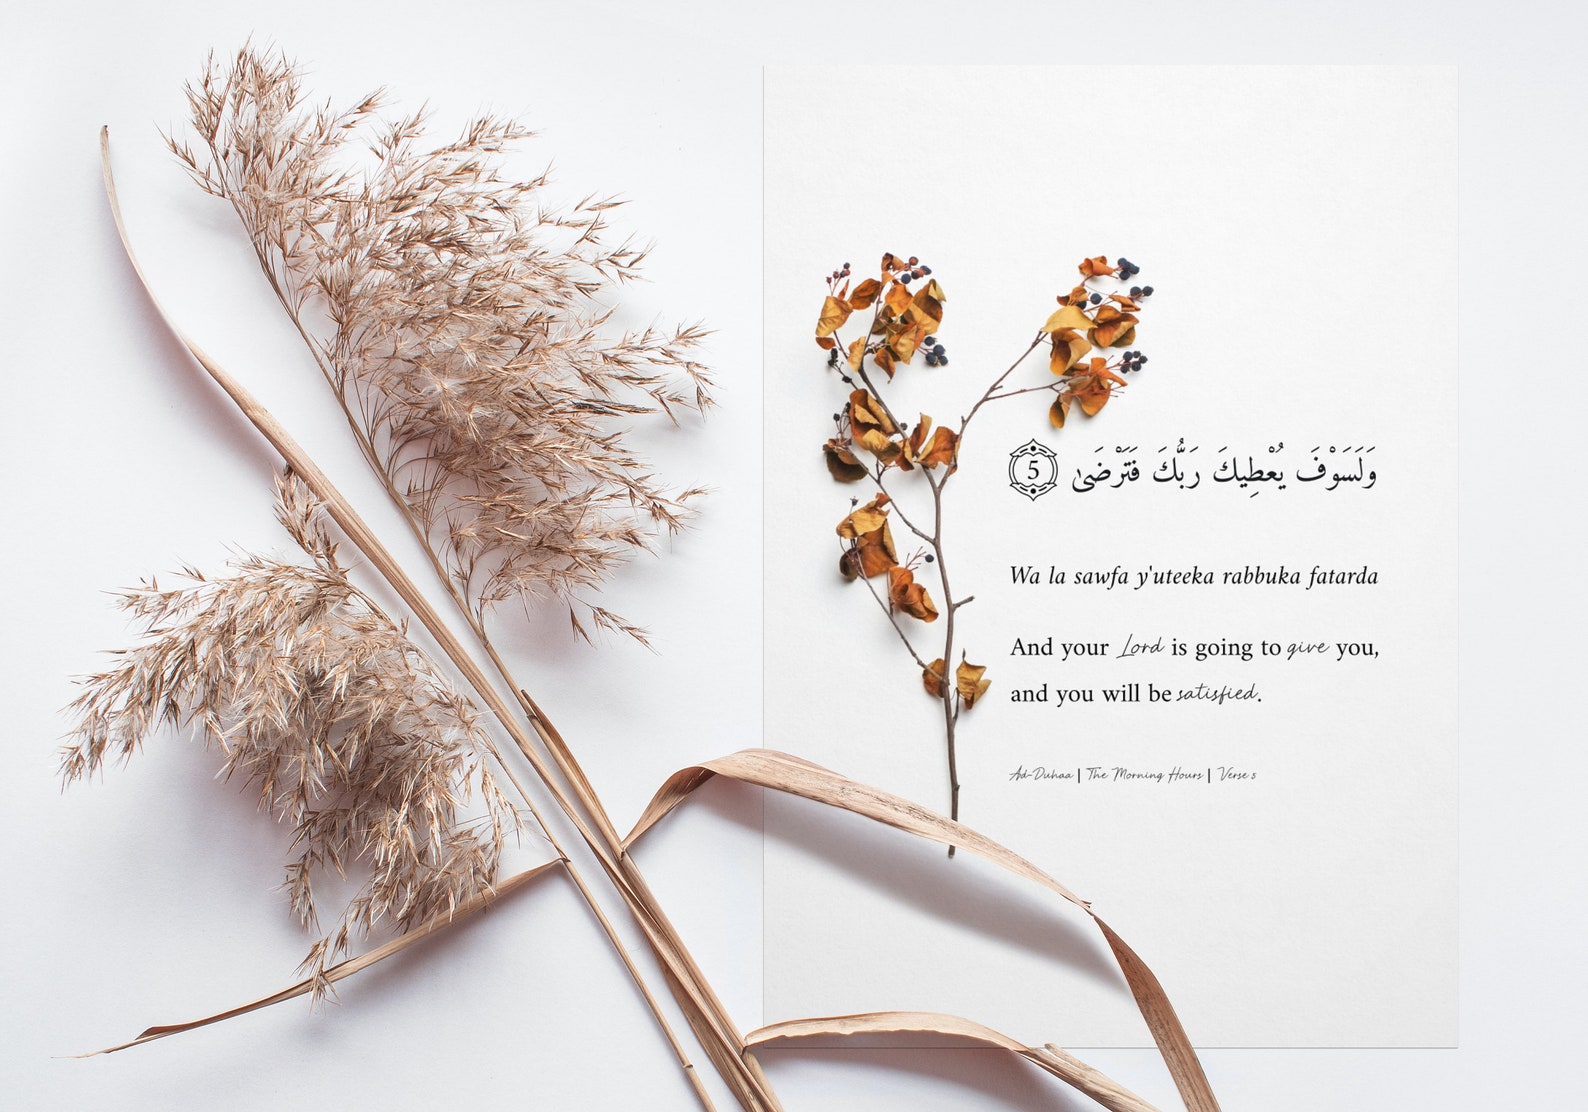 وَلَسَوْفَ يُعْطِيكَ رَبُّكَ فَتَرْضَىٰ 5
Wa la sawfa y'uteeka rabbuka fatarda
And your Lord is going to give you,
and you will be satisfied.
Ad-Duhaa | The Morning Hours | Verse 5